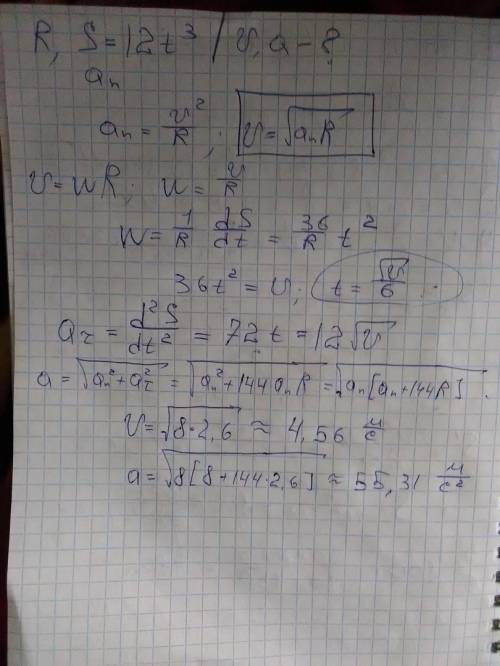 R, S = 12t³ / v, a - ?
aₙ
aₙ = v²/R ; v = √(aₙR)
v = wR; w = v/R
w = 1/R dS/dt = 36/R t²
36t² = v; t = √v/6 .
a_τ = d²S/dt² = 72t = 12√v
a = √(aₙ² + a_τ²) = √(aₙ² + 144aₙR) = √(aₙ[aₙ + 144R]) .
v = √(8·2,6) ≈ 4,56 м/с
a = √(8[8 + 144·2,6]) ≈ 55,31 м/с²